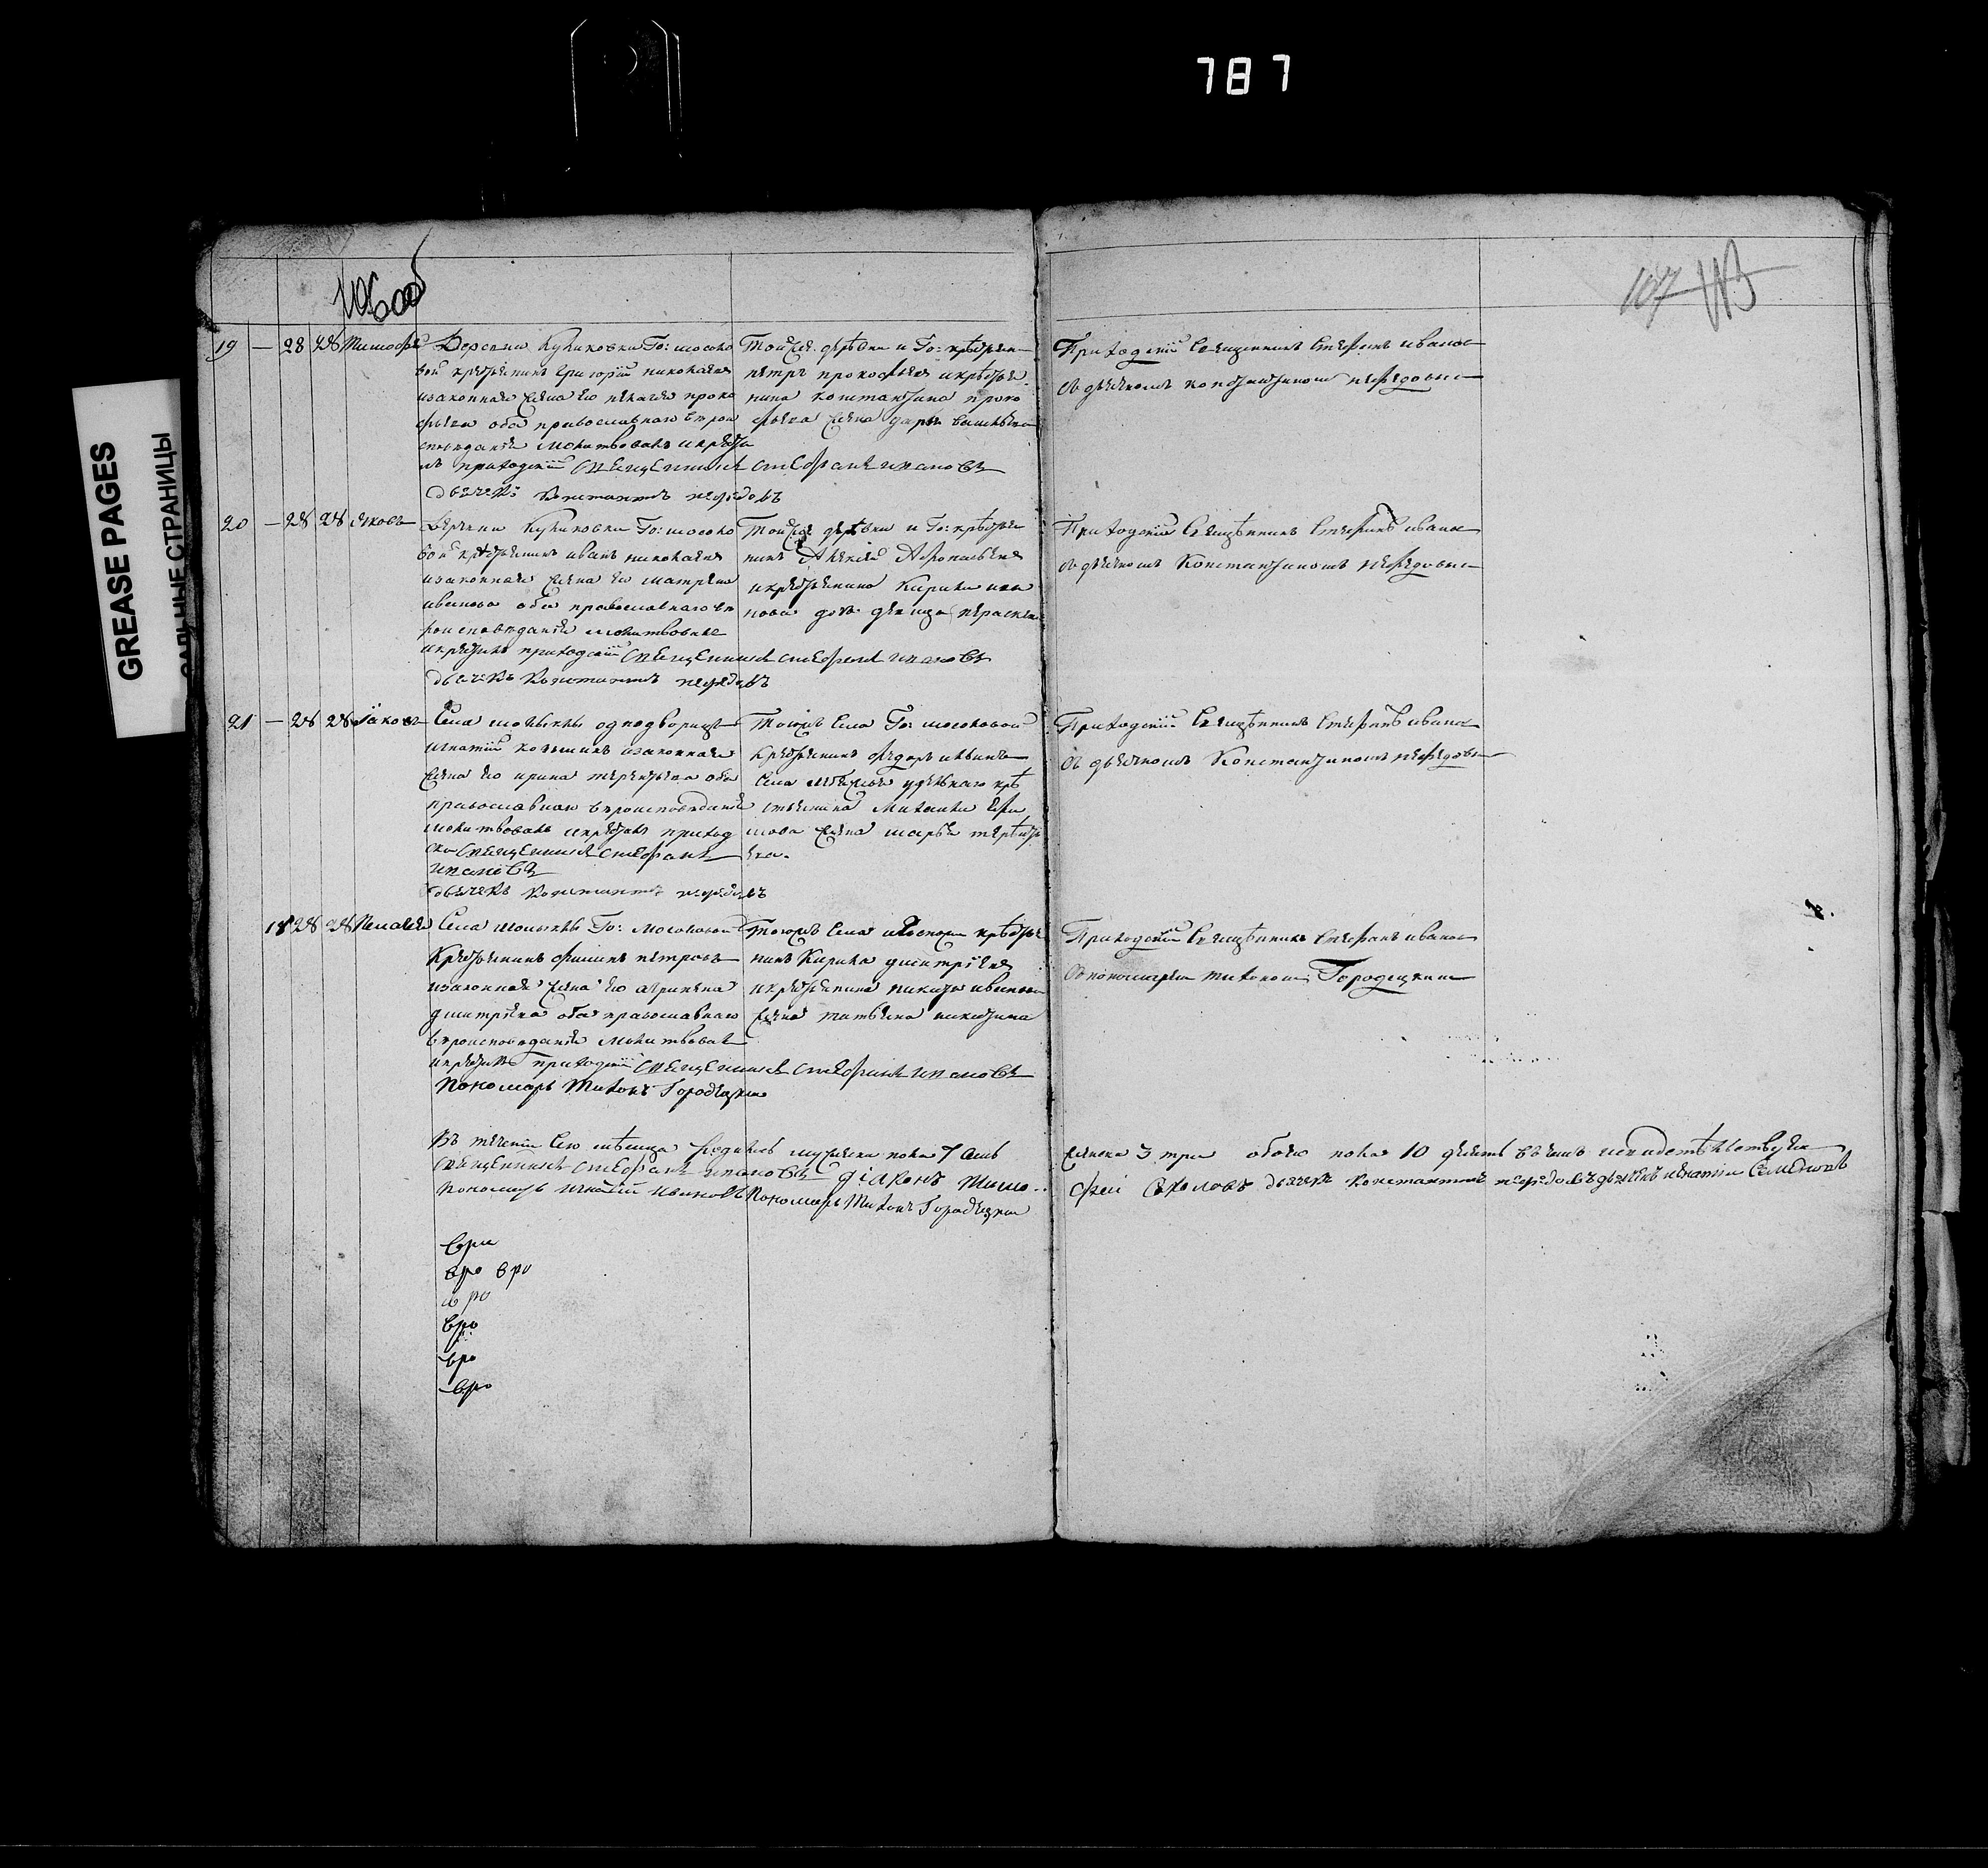 787
GREASE PAGES
САЛЬНЫЕ СТРАНИЦЫ
106 об
107 113
19 — 28 28 Тимофей
Деревни Куликовки Го: мосоло
вой крестьянинъ Григорій николаевъ
изаконная жена его пелагея проко
фьева оба православнаго вѣрои
споведанія молитвовалъ икрести
лъ приходскій священникъ стефанъ ивановъ
дьячекъ Константинъ нефедовъ
Той же деревни и Го: крестьянин
петръ прокофьевъ икрестья
нина константина проко
фьева жена дарья васильева
Приходскій Священникъ Стефанъ иванов
съ дьячкомъ константиномъ нефедовы
20 — 28 28 Яковъ
Деревни Куликовки Го: мосоло
вой крестьянинъ иванъ николаевъ
изаконная жена его матрена
иванова оба православнаго вѣ
роисповеданія молитвовалъ
икрестилъ приходскій священникъ стефанъ ивановъ
дьячекъ Константинъ нефедовъ
Той же деревни и Го: крестьяни
нинъ Алексей Афонасьевъ
икрестьянина Кирила ива
нова дочь девица параскева
Приходскій Священникъ Стефанъ иванов
съ дьячкомъ Константиномъ нефедовы
21 — 28 28 Іаковъ
Села однодворецъ
игнатій изаконная
жена его ирина терентьева оба
православнаго вероисповеданія
молитвовалъ икрестилъ приход
ско священникъ стефанъ
ивановъ
дьячекъ Константинъ нефедовъ
Тогожъ Села Го: мосоловой
крестьянинъ федоръ
Села удельнаго кре
стьянина Михаила Ефи
мова жена марья терентье
ева.
Приходскій Священникъ Стефанъ иванов
съ дьячкомъ Константиномъ нефедовы
18 28 28 Пелагея
Села Го: Мосоловой
Крестьянинъ филипъ петровъ
изаконная жена его агрипена
дмитріева оба православнаго
вероисповеданія молитвовалъ
икрестилъ приходскій священникъ стефанъ ивановъ
Пономарь Тихонъ Городецкій
Тогожъ Села крестья
нинъ Кирила дмитріевъ
икрестьянина никиты иванова
жена татьяна никитина
Приходскій Священникъ Стефанъ иванов
съ пономаремъ тихономъ Городецкимъ
Въ теченіи Сего месяца родилось мужеска пола 7 семь
женска 3 три обоего пола 10 десять въ чемъ исвидетельствуем
священникъ стефанъ ивановъ діаконъ Тимо
фей Соколовъ дьячекъ Константинъ нефедовъ дьячекъ игнатій
пономарь игнатій ивановъ Пономарь Тихонъ Городецкій
вро вро
вро
вро
вро